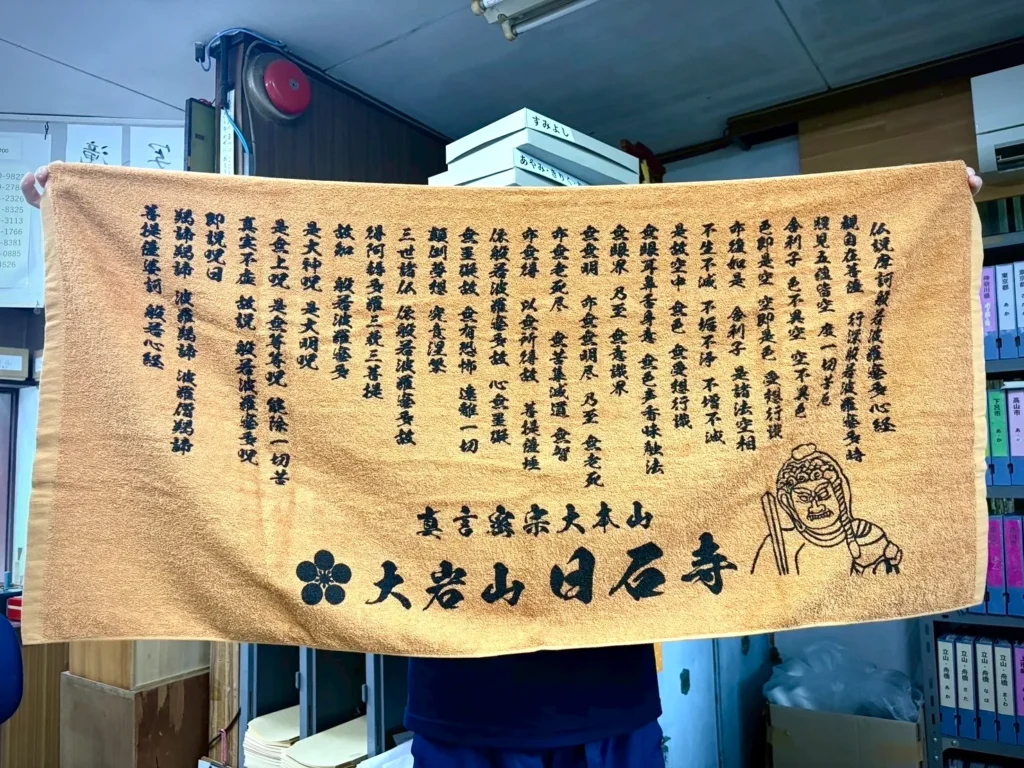 仏説摩訶般若波羅蜜多心経
観自在菩薩 行深般若波羅蜜多時
照見五蘊皆空 度一切苦厄
舎利子 色不異空 空不異色
色即是空 空即是色 受想行識
亦復如是 舎利子 是諸法空相
不生不滅 不垢不浄 不増不減
是故空中 無色 無受想行識
無眼耳鼻舌身意 無色声香味触法
無眼界 乃至 無意識界
無無明 亦無無明尽 乃至 無老死
亦無老死尽 無苦集滅道 無智
亦無得 以無所得故 菩提薩埵
依般若波羅蜜多故 心無罣礙
無罣礙故 無有恐怖 遠離一切
顛倒夢想 究竟涅槃
三世諸仏 依般若波羅蜜多故
得阿耨多羅三藐三菩提
故知 般若波羅蜜多
是大神呪 是大明呪
是無上呪 是無等等呪 能除一切苦
真実不虚 故説 般若波羅蜜多呪
即説呪曰
羯諦羯諦 波羅羯諦 波羅僧羯諦
菩提薩婆訶 般若心経
真言密宗大本山
大岩山 日石寺
すみよし
神奈川県
東京都 あか
下呂市
高山市
立山・舟橋 あ か
立山・舟橋 さ た
立山・舟橋 な は
立山・舟橋